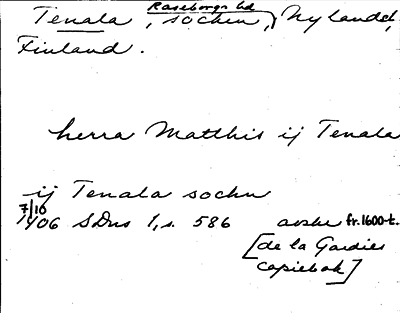 Raseborgs hd
Tenala, socken, Nyland,
Finland.
herra Matthis ij Tenala
ij Tenala sochn
7/10
1406 SDns 1, s. 586 avskr fr. 1600-t.
[de la Gardies
copiebok]